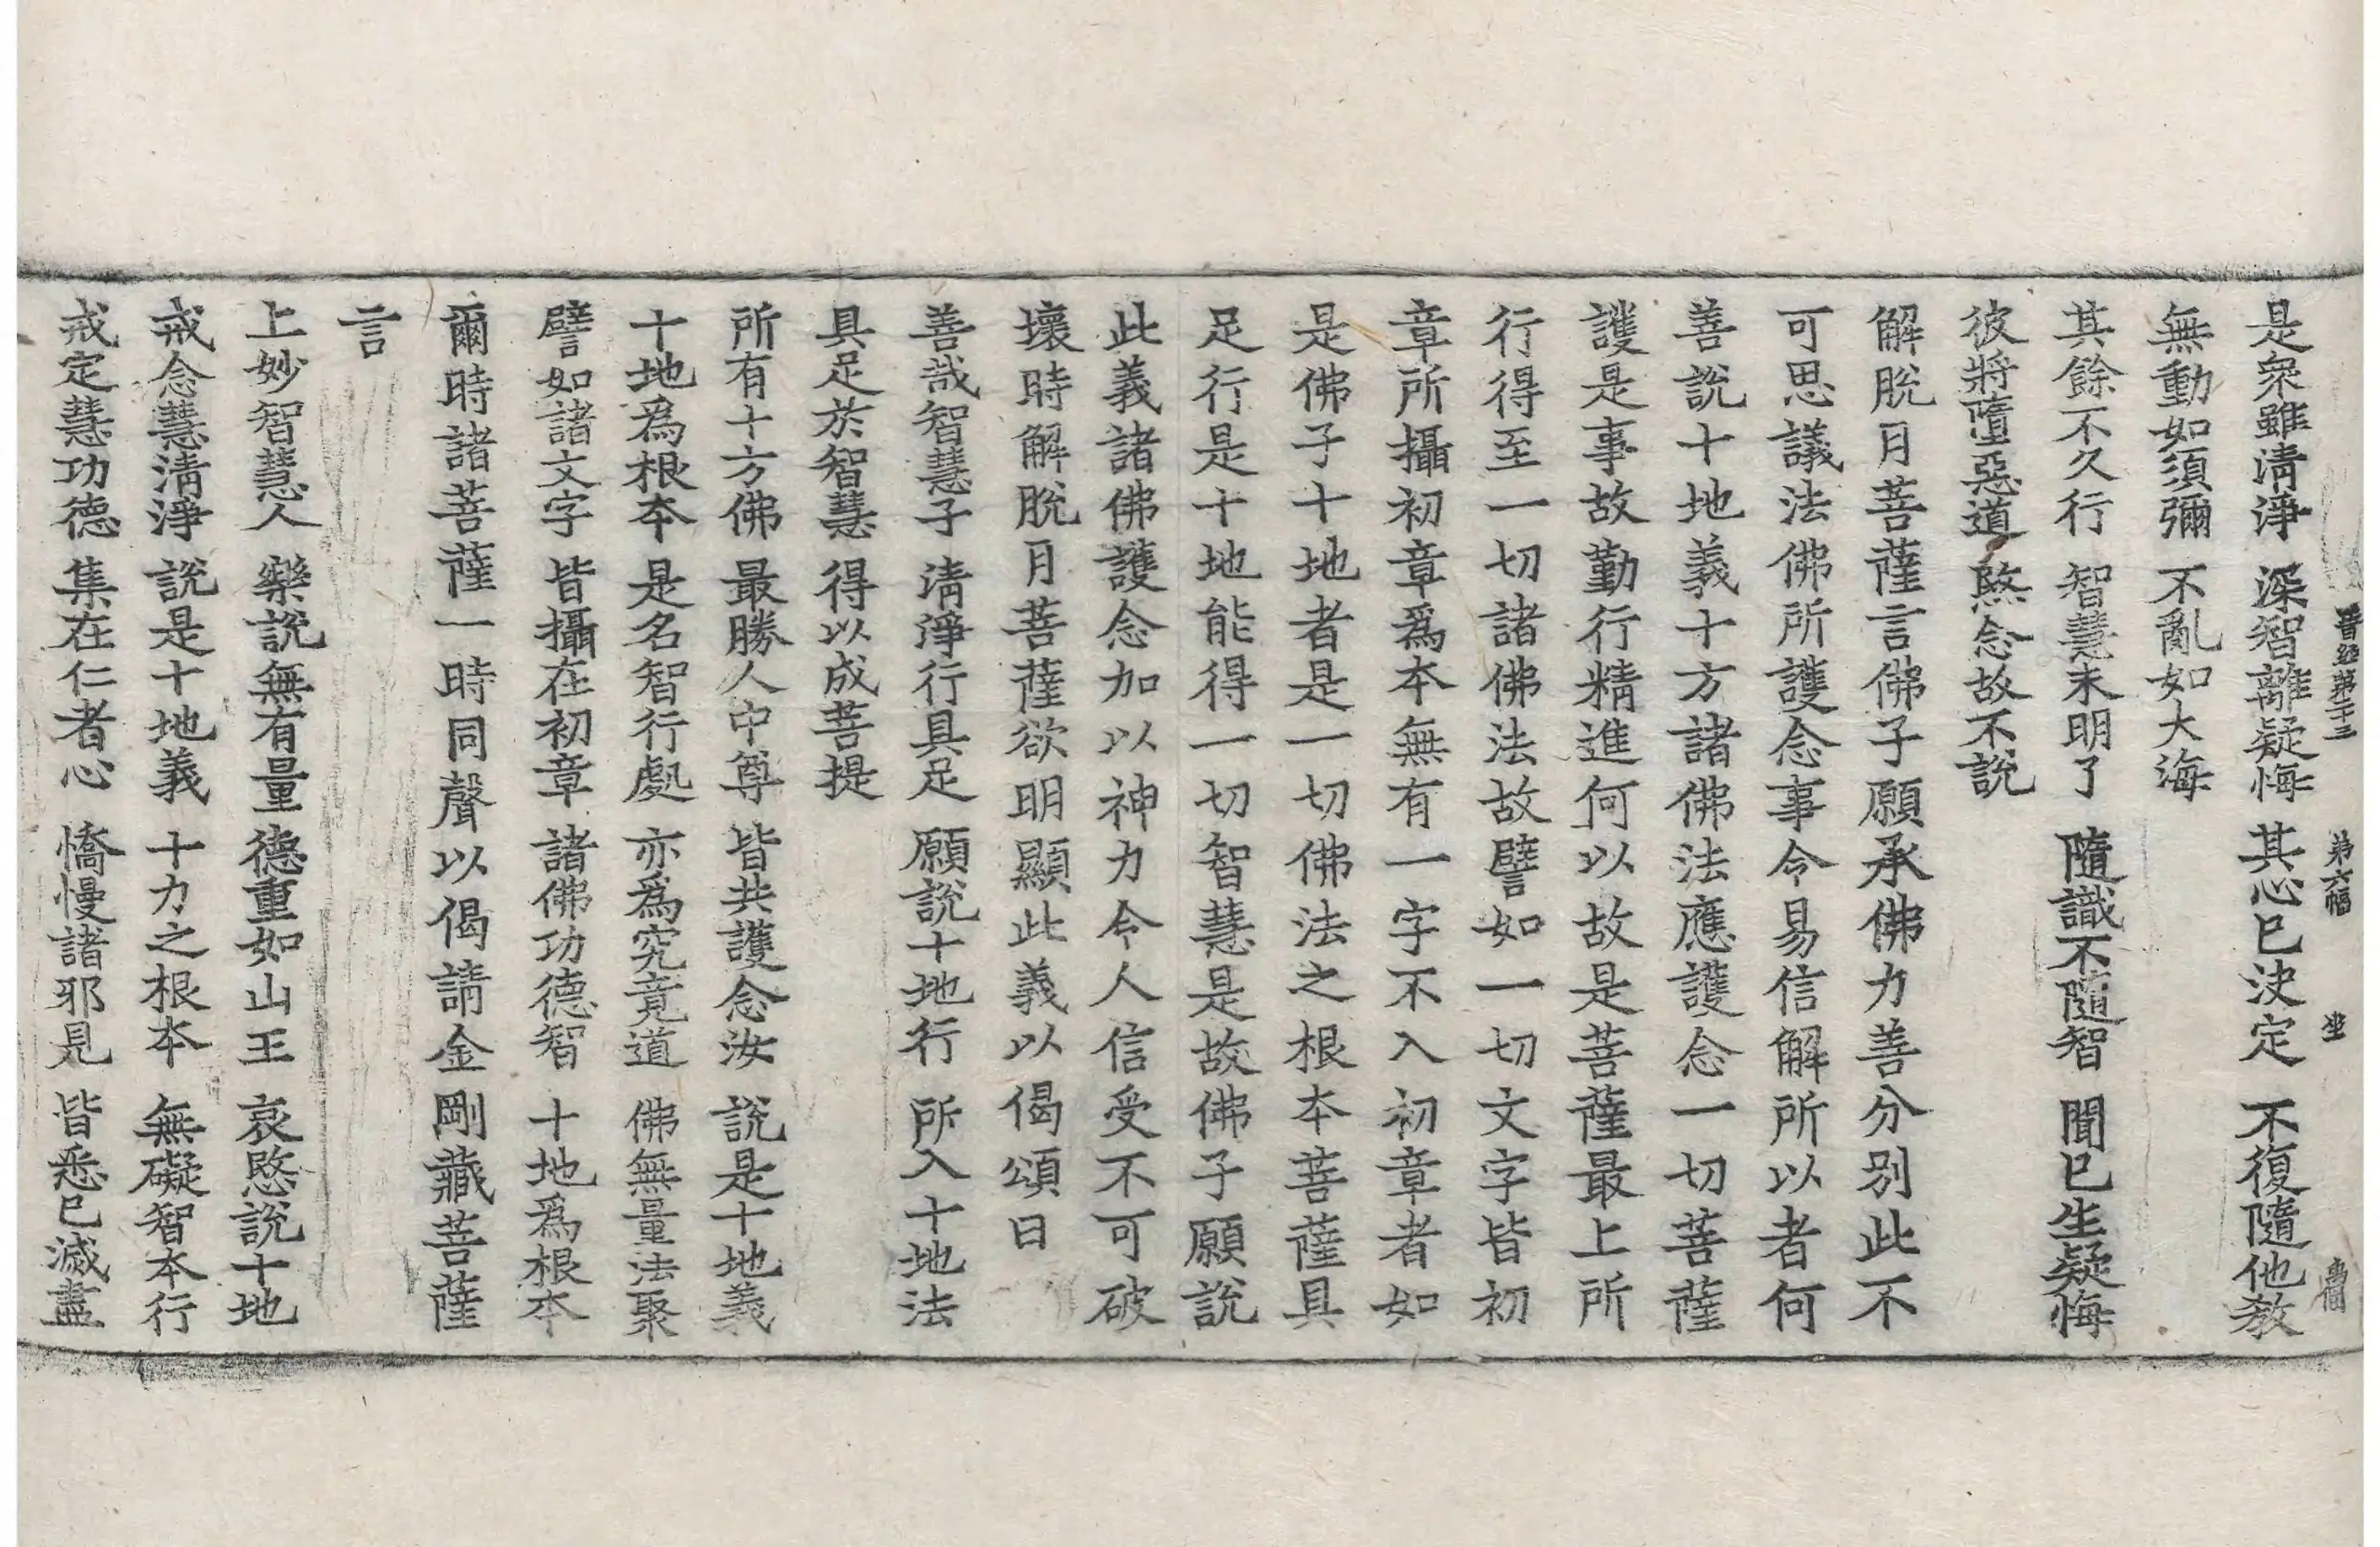 晋經第二十三 第六幅 坐
是衆雖淸淨 深智離疑悔 其心已決定 不復隨他敎
無動如須彌 不亂如大海
其餘不久行 智慧未明了 隨識不隨智 聞已生疑悔
彼將墮惡道 愍念故不說
解脫月菩薩言佛子願承佛力善分別此不
可思議法佛所護念事令易信解所以者何
善說十地義十方諸佛法應護念一切菩薩
護是事故勤行精進何以故是菩薩最上所
行得至一切諸佛法故譬如一切文字皆初
章所攝初章爲本無有一字不入初章者如
是佛子十地者是一切佛法之根本菩薩具
足行是十地能得一切智慧是故佛子願說
此義諸佛護念加以神力令人信受不可破
壞時解脫月菩薩欲明顯此義以偈頌曰
善哉智慧子 淸淨行具足 願說十地行 所入十地法
具足於智慧 得以成菩提
所有十方佛 最勝人中尊 皆共護念汝 說是十地義
十地爲根本 是名智行處 亦爲究竟道 佛無量法聚
譬如諸文字 皆攝在初章 諸佛功德智 十地爲根本
爾時諸菩薩一時同聲以偈請金剛藏菩薩
言
上妙智慧人 樂說無有量 德重如山王 哀愍說十地
戒念慧淸淨 說是十地義 十力之根本 無礙智本行
戒定慧功德 集在仁者心 憍慢諸邪見 皆悉已滅盡